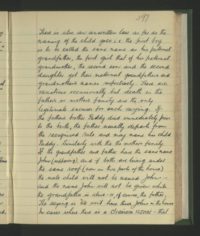 197
There is also an unwritten law as far as the
naming of the child goes i.e. the first boy
is to be called the same name as his paternal
grandfather, the first girl that of his paternal
grandmother, the second son and the second
daughter get their maternal grandfathers and
grandmothers names respectively. There are
variations occasionally but death in the
father or mothers family are the only
legitimate excuse for such varying. If
the fathers brother Paddy died immediately prior
to the birth, the father usually departs from
the recognised rule and may name his child
Paddy. Similarly with the mothers family.
If the grandfather and father have the same name
John (possibly) and if both are living under
the same roof
the male child will not be named John
and the name John will not be given while
the grandfather is alive
The saying is "We will have three Johns in the house
In cases where there is a